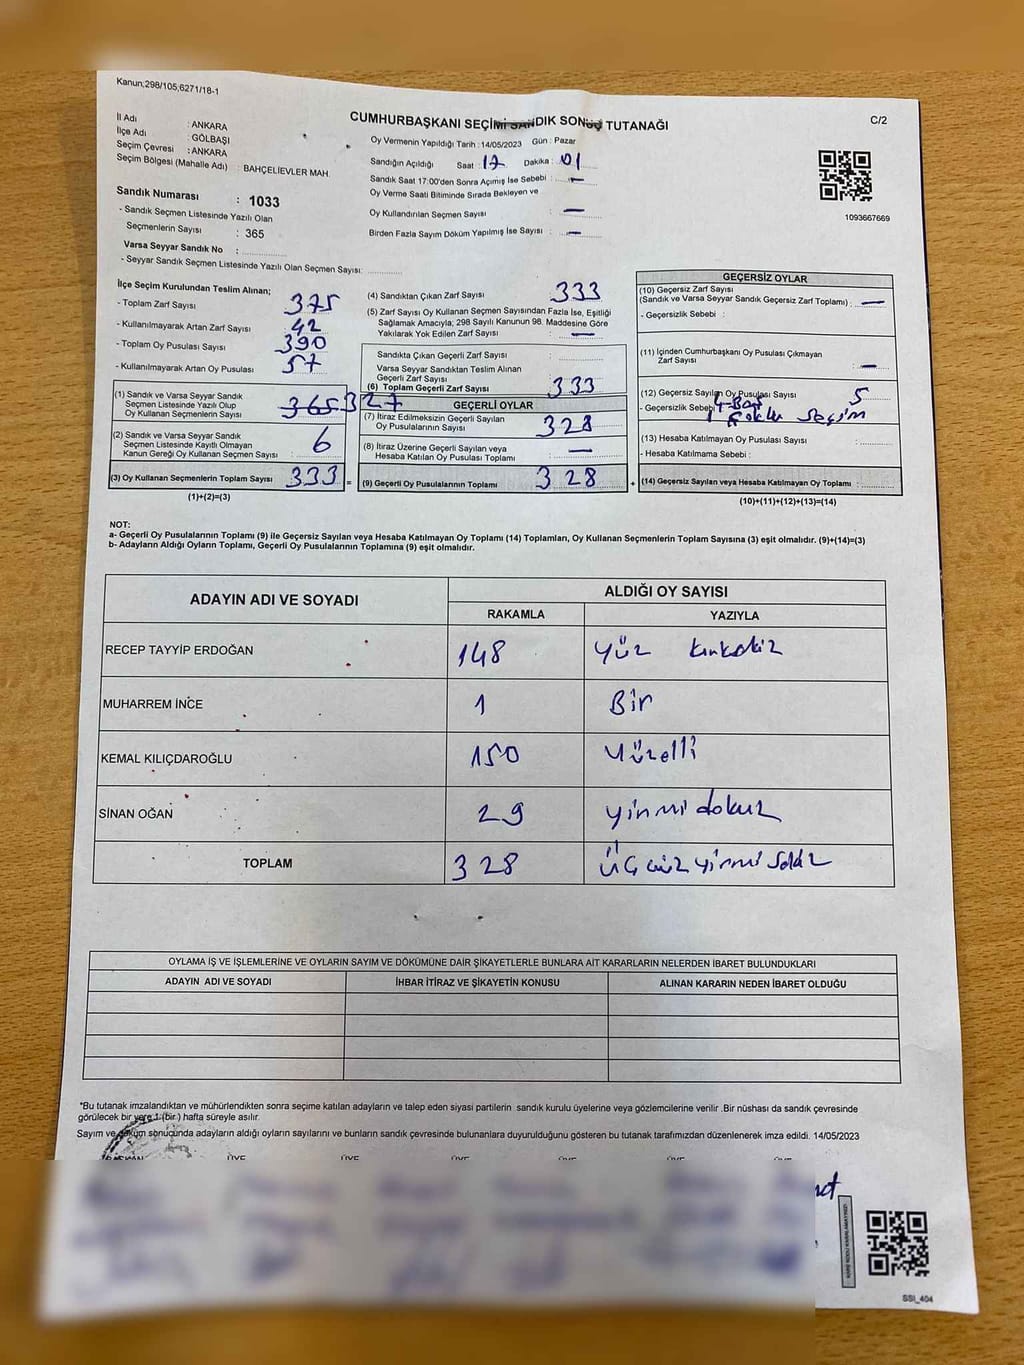 Kanun;298/105;6271/18-1
CUMHURBAŞKANI SEÇİMİ SANDIK SONUÇ TUTANAĞI
C/2
İl Adı : ANKARA
İlçe Adı : GÖLBAŞI
Seçim Çevresi : ANKARA
Seçim Bölgesi (Mahalle Adı) : BAHÇELİEVLER MAH.
Sandık Numarası : 1033
- Sandık Seçmen Listesinde Yazılı Olan
Seçmenlerin Sayısı : 365
Varsa Seyyar Sandık No :
- Seyyar Sandık Seçmen Listesinde Yazılı Olan Seçmen Sayısı:
Oy Vermenin Yapıldığı Tarih : 14/05/2023 Gün : Pazar
Sandığın Açıldığı Saat : 17 Dakika : 01
Sandık Saat 17:00'den Sonra Açımış İse Sebebi : —
Oy Verme Saati Bitiminde Sırada Bekleyen ve
Oy Kullandırılan Seçmen Sayısı : —
Birden Fazla Sayım Döküm Yapılmış İse Sayısı : —
1093667669
İlçe Seçim Kurulundan Teslim Alınan;
- Toplam Zarf Sayısı : 375
- Kullanılmayarak Artan Zarf Sayısı : 42
- Toplam Oy Pusulası Sayısı : 390
- Kullanılmayarak Artan Oy Pusulası : 57
(1) Sandık ve Varsa Seyyar Sandık
Seçmen Listesinde Yazılı Olup
Oy Kullanan Seçmenlerin Sayısı : 365 327
(2) Sandık ve Varsa Seyyar Sandık
Seçmen Listesinde Kayıtlı Olmayan
Kanun Gereği Oy Kullanan Seçmen Sayısı : 6
(3) Oy Kullanan Seçmenlerin Toplam Sayısı : 333 =
(1)+(2)=(3)
(4) Sandıktan Çıkan Zarf Sayısı : 333
(5) Zarf Sayısı Oy Kullanan Seçmen Sayısından Fazla İse, Eşitliği
Sağlamak Amacıyla; 298 Sayılı Kanunun 98. Maddesine Göre
Yakılarak Yok Edilen Zarf Sayısı : —
Sandıkta Çıkan Geçerli Zarf Sayısı :
Varsa Seyyar Sandıktan Teslim Alınan
Geçerli Zarf Sayısı :
(6) Toplam Geçerli Zarf Sayısı : 333
GEÇERLİ OYLAR
(7) İtiraz Edilmeksizin Geçerli Sayılan
Oy Pusulalarının Sayısı : 328
(8) İtiraz Üzerine Geçerli Sayılan veya
Hesaba Katılan Oy Pusulası Toplamı : —
(9) Geçerli Oy Pusulalarının Toplamı : 328 +
GEÇERSİZ OYLAR
(10) Geçersiz Zarf Sayısı
(Sandık ve Varsa Seyyar Sandık Geçersiz Zarf Toplamı) : —
- Geçersizlik Sebebi :
(11) İçinden Cumhurbaşkanı Oy Pusulası Çıkmayan
Zarf Sayısı : —
(12) Geçersiz Sayılan Oy Pusulası Sayısı : 5
- Geçersizlik Sebebi : 4-Boş
1 Çoklu Seçim
(13) Hesaba Katılmayan Oy Pusulası Sayısı :
- Hesaba Katılmama Sebebi :
(14) Geçersiz Sayılan veya Hesaba Katılmayan Oy Toplamı :
(10)+(11)+(12)+(13)=(14)
NOT:
a- Geçerli Oy Pusulalarının Toplamı (9) ile Geçersiz Sayılan veya Hesaba Katılmayan Oy Toplamı (14) Toplamları, Oy Kullanan Seçmenlerin Toplam Sayısına (3) eşit olmalıdır. (9)+(14)=(3)
b- Adayların Aldığı Oyların Toplamı, Geçerli Oy Pusulalarının Toplamına (9) eşit olmalıdır.
ADAYIN ADI VE SOYADI ALDIĞI OY SAYISI
RAKAMLA YAZIYLA
RECEP TAYYİP ERDOĞAN 148 Yüz kırksekiz
MUHARREM İNCE 1 Bir
KEMAL KILIÇDAROĞLU 150 Yüzelli
SİNAN OĞAN 29 yirmi dokuz
TOPLAM 328 üç yüz yirmi sekiz
OYLAMA İŞ VE İŞLEMLERİNE VE OYLARIN SAYIM VE DÖKÜMÜNE DAİR ŞİKAYETLERLE BUNLARA AİT KARARLARIN NELERDEN İBARET BULUNDUKLARI
ADAYIN ADI VE SOYADI İHBAR İTİRAZ VE ŞİKAYETİN KONUSU ALINAN KARARIN NEDEN İBARET OLDUĞU
*Bu tutanak imzalandıktan ve mühürlendikten sonra seçime katılan adayların ve talep eden siyasi partilerin sandık kurulu üyelerine veya gözlemcilerine verilir .Bir nüshası da sandık çevresinde
görülecek bir yere 1 (bir) hafta süreyle asılır.
Sayım ve döküm sonucunda adayların aldığı oyların sayılarını ve bunların sandık çevresinde bulunanlara duyurulduğunu gösteren bu tutanak tarafımızdan düzenlenerek imza edildi. 14/05/2023
BAŞKAN ÜYE ÜYE ÜYE ÜYE ÜYE ÜYE
SSI_404